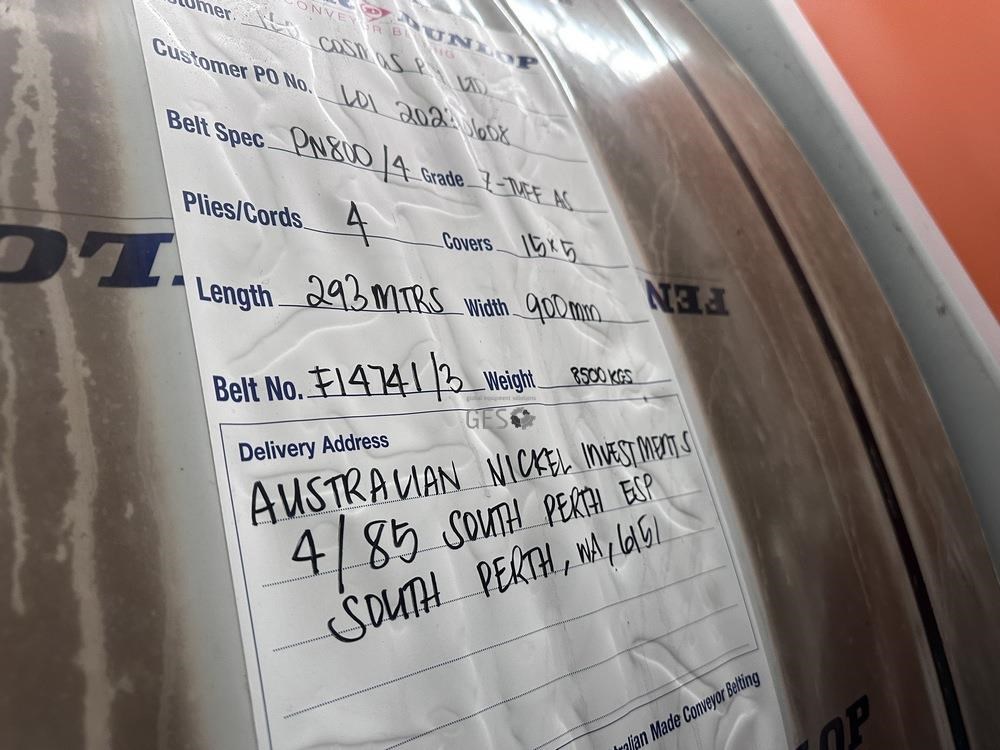 DUNLOP
CONVEYOR BELTING
Customer PO No. LDI 20230608
Belt Spec PN800/4 Grade Z-TUFF AS
Plies/Cords 4 Covers 15x5
Length 293 MTRS Width 900mm
Belt No. F14741/3 Weight 8500 KGS
global equipment solutions
GES
Delivery Address
AUSTRALIAN NICKEL INVESTMENTS
4/85 SOUTH PERTH ESP
SOUTH PERTH, WA, 6151
ralian Made Conveyor Belting
FEN
LOP